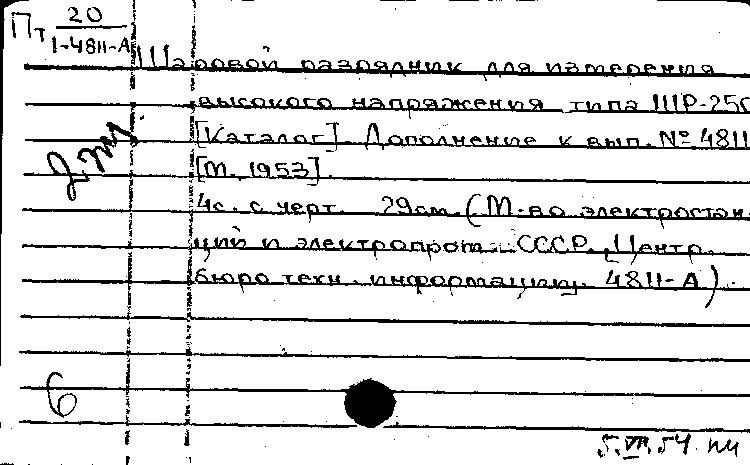 Пт 20
1-4811-А
Шаровой разрядник для измерения
высокого напряжения типа ШР-250
[Каталог]. Дополнение к вып. № 4811
[М. 1953].
4с. с черт. 29см. (М-во электростан-
ций и электропром. СССР. Центр.
бюро техн. информации. 4811-А).
6
5.VIII.54.